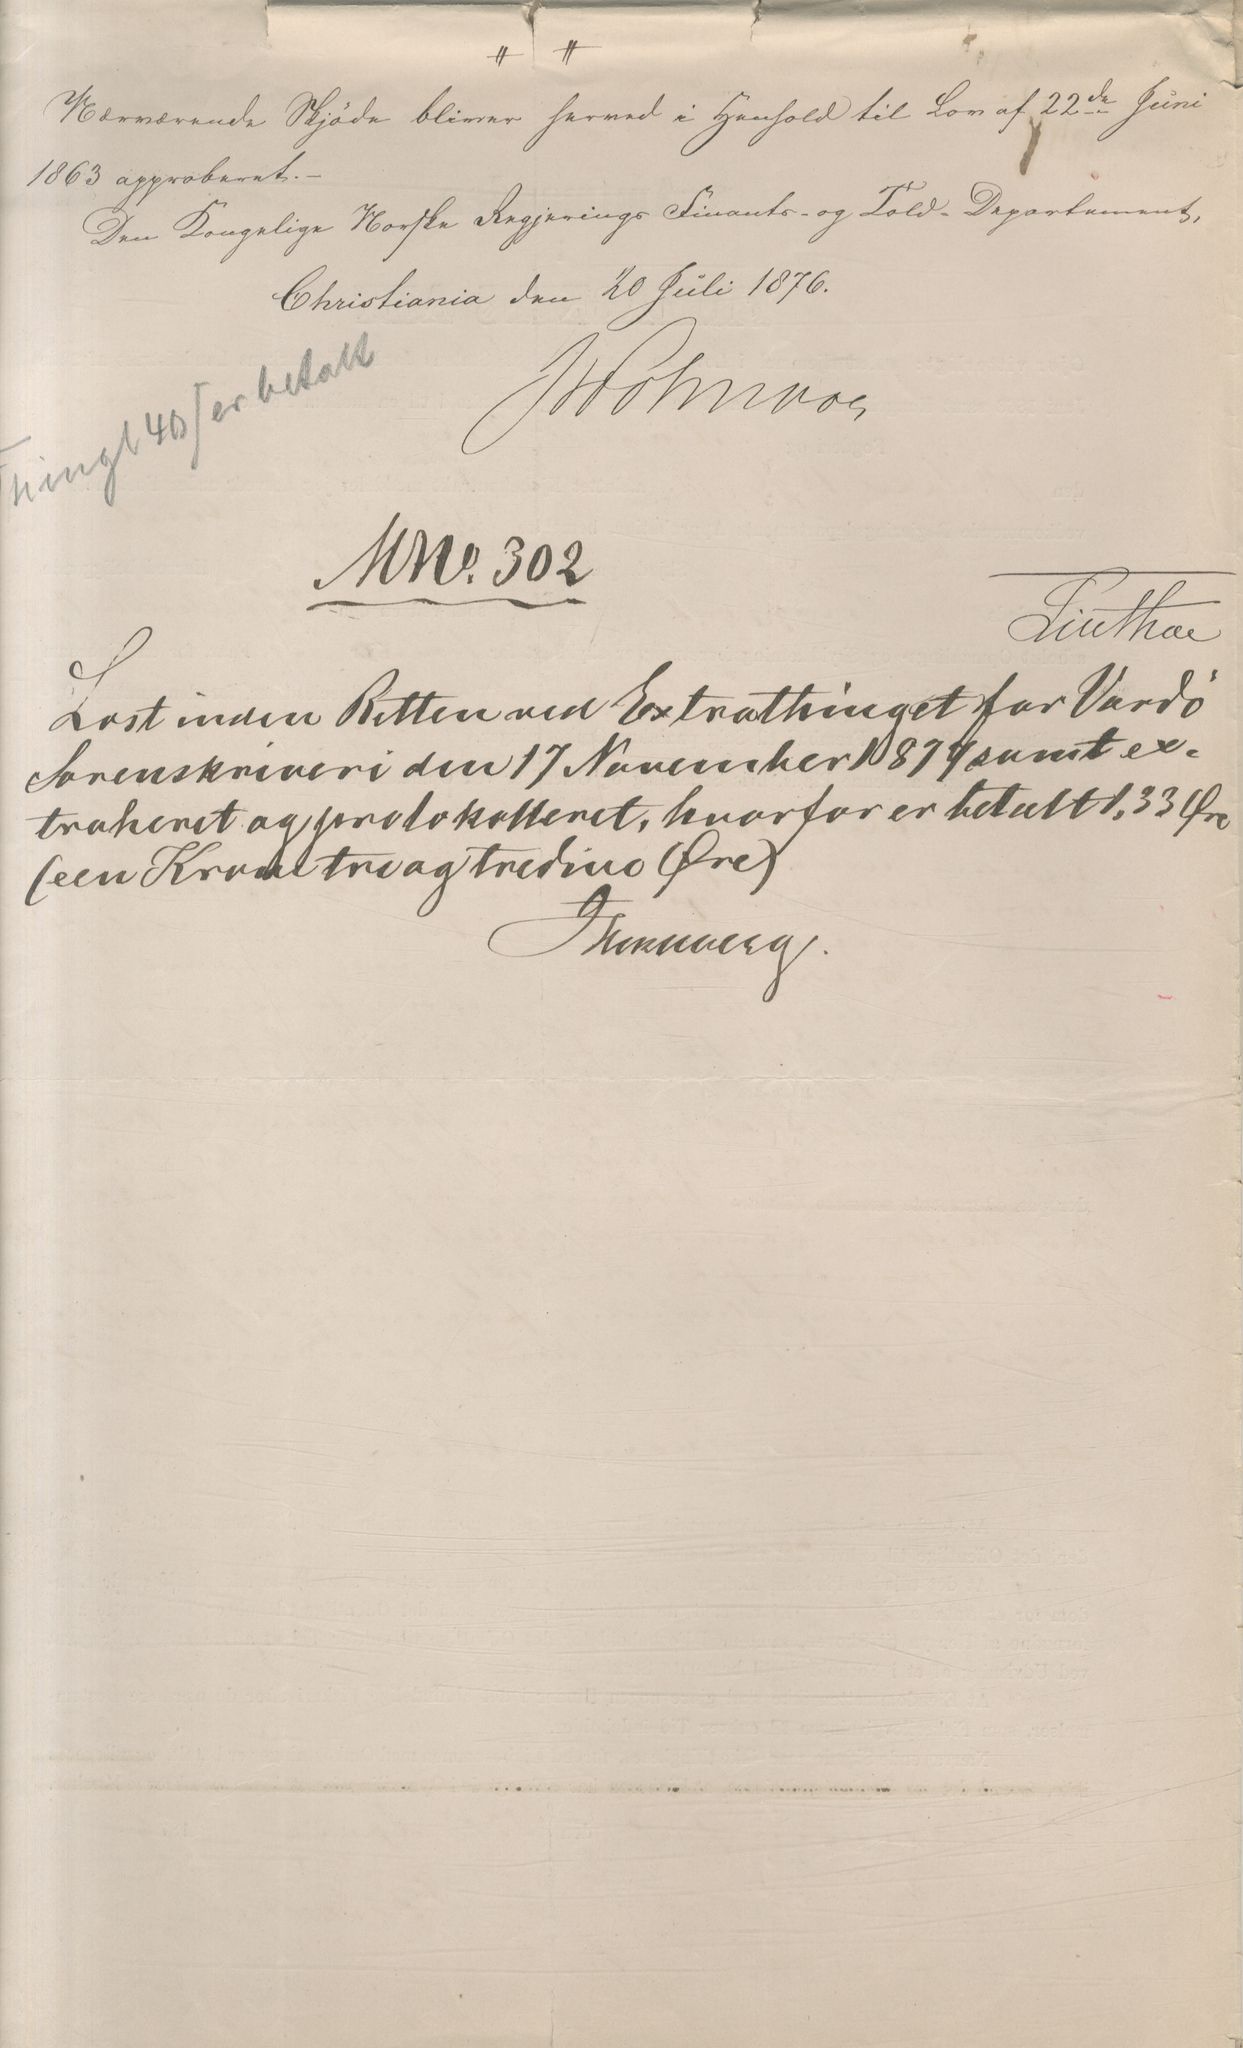 Nærværende Skjøde bliver herved i Henhold til Lov af 22de Juni
1863 approberet.-
Den Kongelige Norske Regjerings Finants- og Told-Departement,
Christiania den 20 Juli 1876.
Thingl 40 er betalt
MNo. 302
Læst inden Retten ved Extrathinget for Vardö
Sorenskriveri den 17 November 1879 samt ex-
traheret og protokolleret, hvorfor er betalt 1,33 Øre
(een Krone tre og tredive Øre)